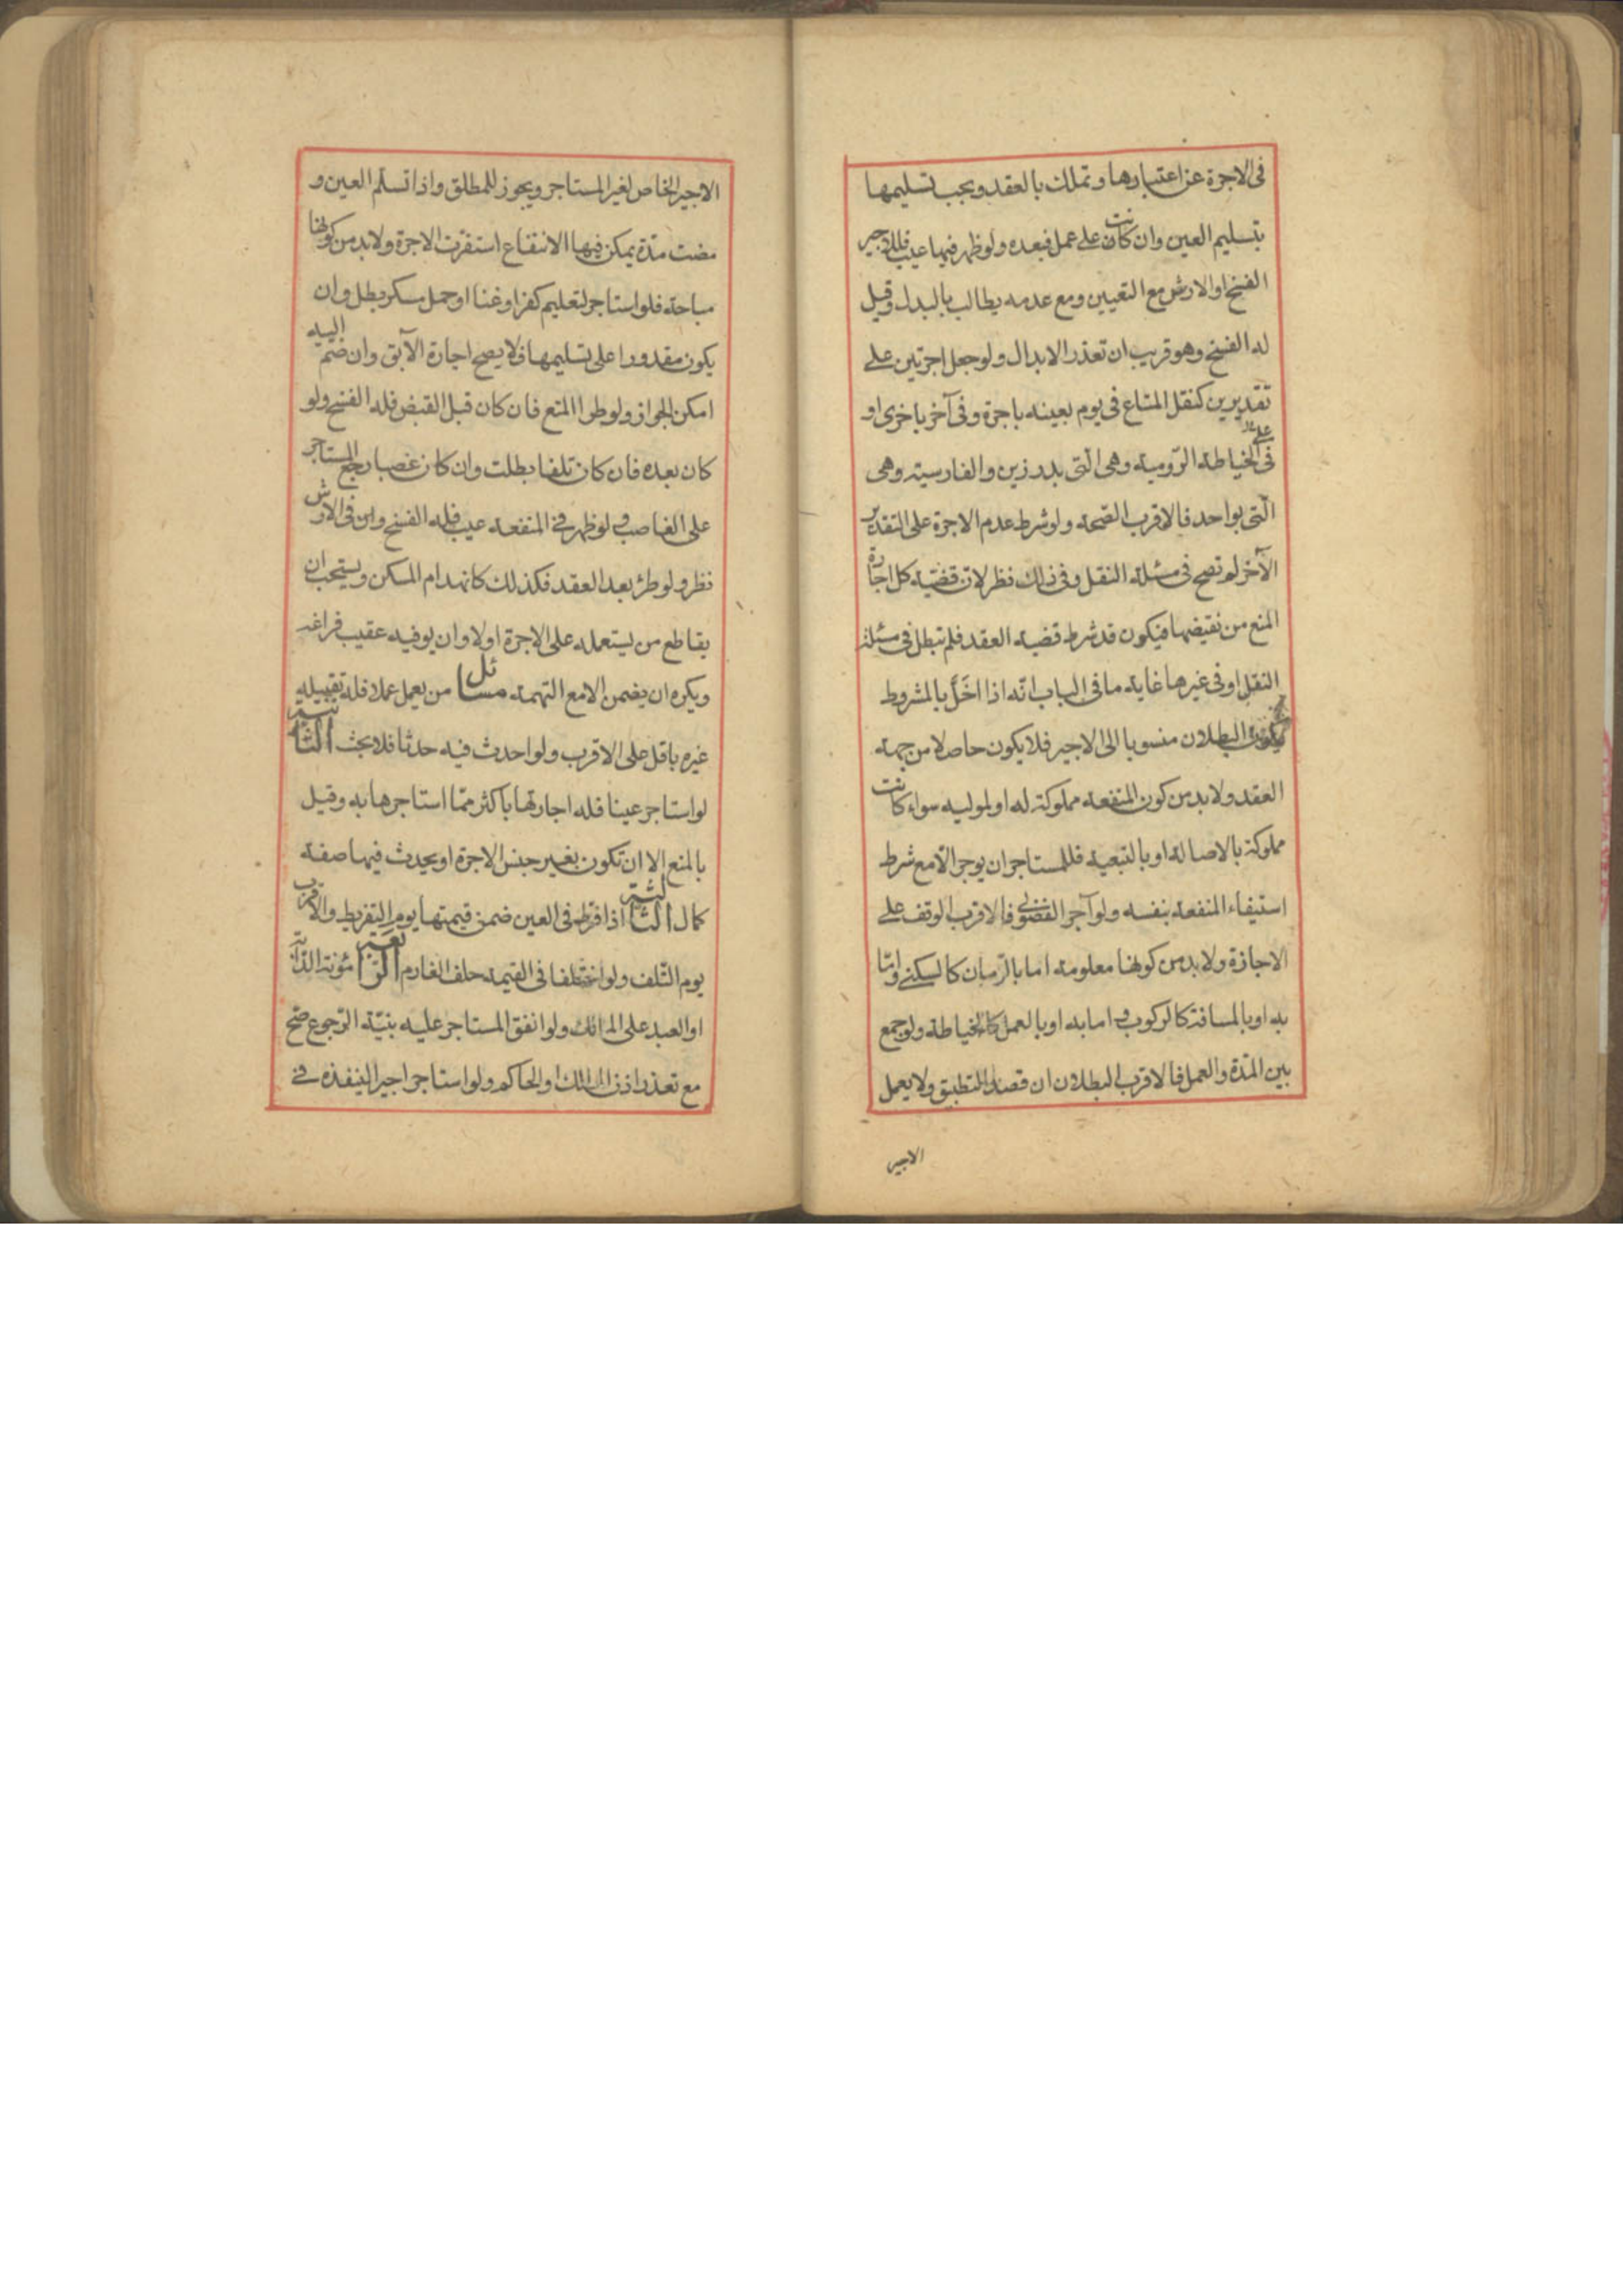 فى الاجرة عن اعتبارها و تملك بالعقد و يجب تسليمها
بتسليم العين وان كانت على عمل فبعده ولو ظهر فيها عيب فللاجير
الفسخ او الارش مع التعيين ومع عدمه يطالب بالبدل وقيل
له الفسخ وهو قريب ان تعذر الابدال ولو جعل اجرتين على
تقديرين كنقل المتاع فى يوم بعينه باجرة وفى آخر باخرى او
فى الخياطة الرّومية وهى التى بدرزين والفارسية وهى
الّتى بواحد فالاقرب الصّحة ولو شرط عدم الاجرة على التقدير
الآخر لم تصح فى مسئلة النقل وفى ذلك نظر لان قضيّة كل اجارة
المنع من نقيضها فيكون قد شرط قضية العقد فلم تبطل فى مسئلة
النقل او فى غيرها غاية ما فى الباب انّه اذا اخلّ بالمشروط
يكون البطلان منسوبا الى الاجير فلا يكون حاصلا من جهة
العقد ولا بد من كون المنفعة مملوكة له او لموليه سواء كانت
مملوكة بالاصالة او بالتبعية فللمستاجر ان يوجر الّا مع شرط
استيفاء المنفعة بنفسه ولو آجر الفضولى فالاقرب الوقف على
الاجازة ولا بد من كونها معلومة اما بالزّمان كالسكنى وامّا
به او بالمسافة كالركوب و اما به او بالعمل كالخياطة ولو جمع
بين المدّة والعمل فالاقرب البطلان ان قصد التطبيق ولا يعمل
الاجير
الاجير الخاص لغير المستاجر ويجوز للمطلق واذا تسلّم العين و
مضت مدّة يمكن فيها الانتفاع استقرّت الاجرة ولا بد من كونها
مباحة فلو استاجر لتعليم كفر او غنا او حمل مسكر بطل وان
يكون مقدورا على تسليمها فلا يصح اجارة الآبق وان ضم اليه
امكن الجواز ولو طرا المنع فان كان قبل القبض فله الفسخ ولو
كان بعده فان كان تلفا بطلت وان كان غصبا رجع المستاجر
على الغاصب و لو ظهر فى المنفعة عيب فله الفسخ و فى الارش
نظر ولو طرئ بعد العقد فكذلك كانهدام المسكن ويستحب ان
يقاطع من يستعمله على الاجرة اولا وان يوفيه عقيب فراغه
ويكره ان يضمن الا مع التهمة مسائل من يعمل عملا فله تقبيله
غيره باقل على الاقرب ولو احدث فيه حدثا فلا بحث الثّانية
لو استاجر عينا فله اجارتها باكثر ممّا استاجرها به وقيل
بالمنع الا ان تكون بغير جنس الاجرة او يحدث فيها صفة
كمال الثالثة اذا فرّط فى العين ضمن قيمتها يوم التفريط والاقرب
يوم التّلف ولو اختلفا فى القيمة حلف الغارم الرّابعة مؤنة الدّابّة
او العبد على المالك ولو انفق المستاجر عليه بنيّة الرّجوع صح
مع تعذر اذن المالك او الحاكم ولو استاجر اجيرا لينفذه فى